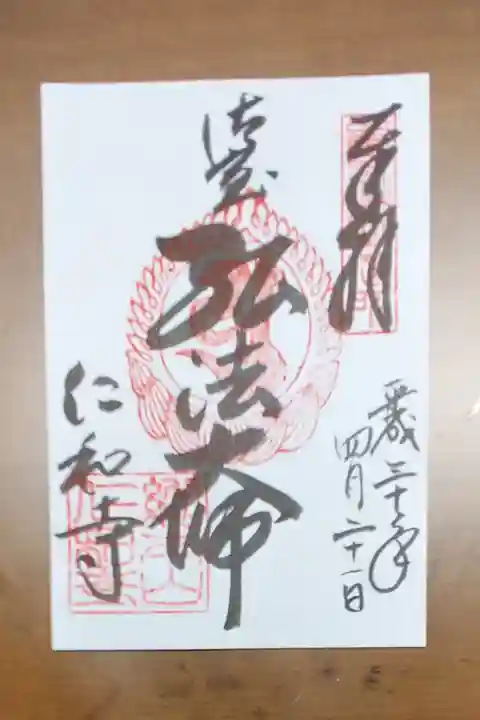 奉拝
平成三十年
四月二十一日
弘法大師
仁和寺